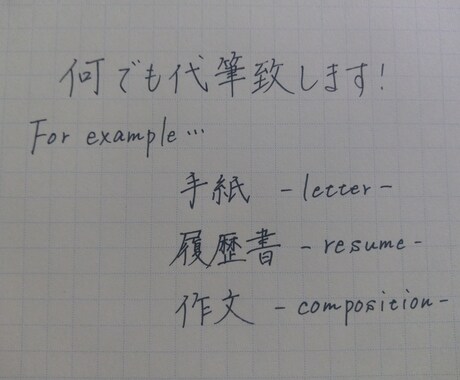 何でも代筆致します!
For example…
手紙 -letter-
履歴書 -resume-
作文 -composition-